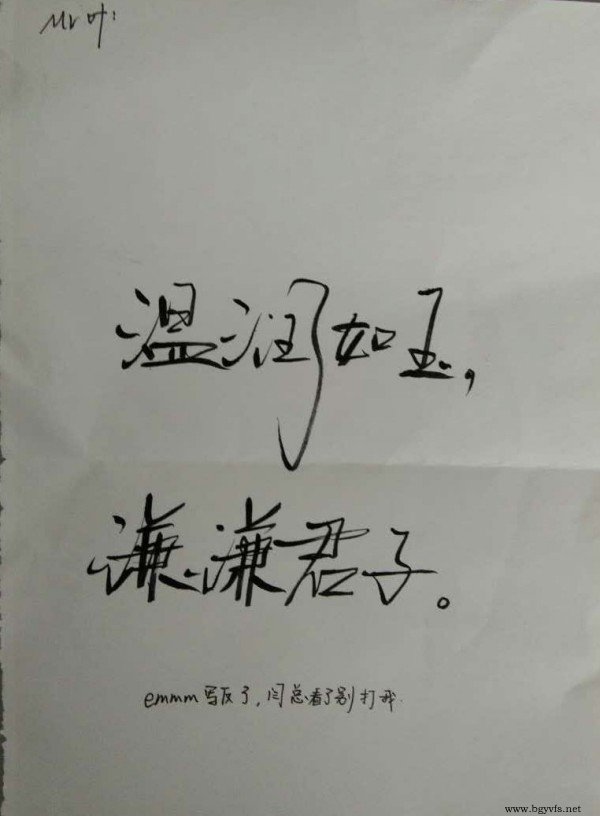 Mr叶:
温润如玉,
谦谦君子。
emmm写反了,闫总看了别打我.
www.bgyvfs.net